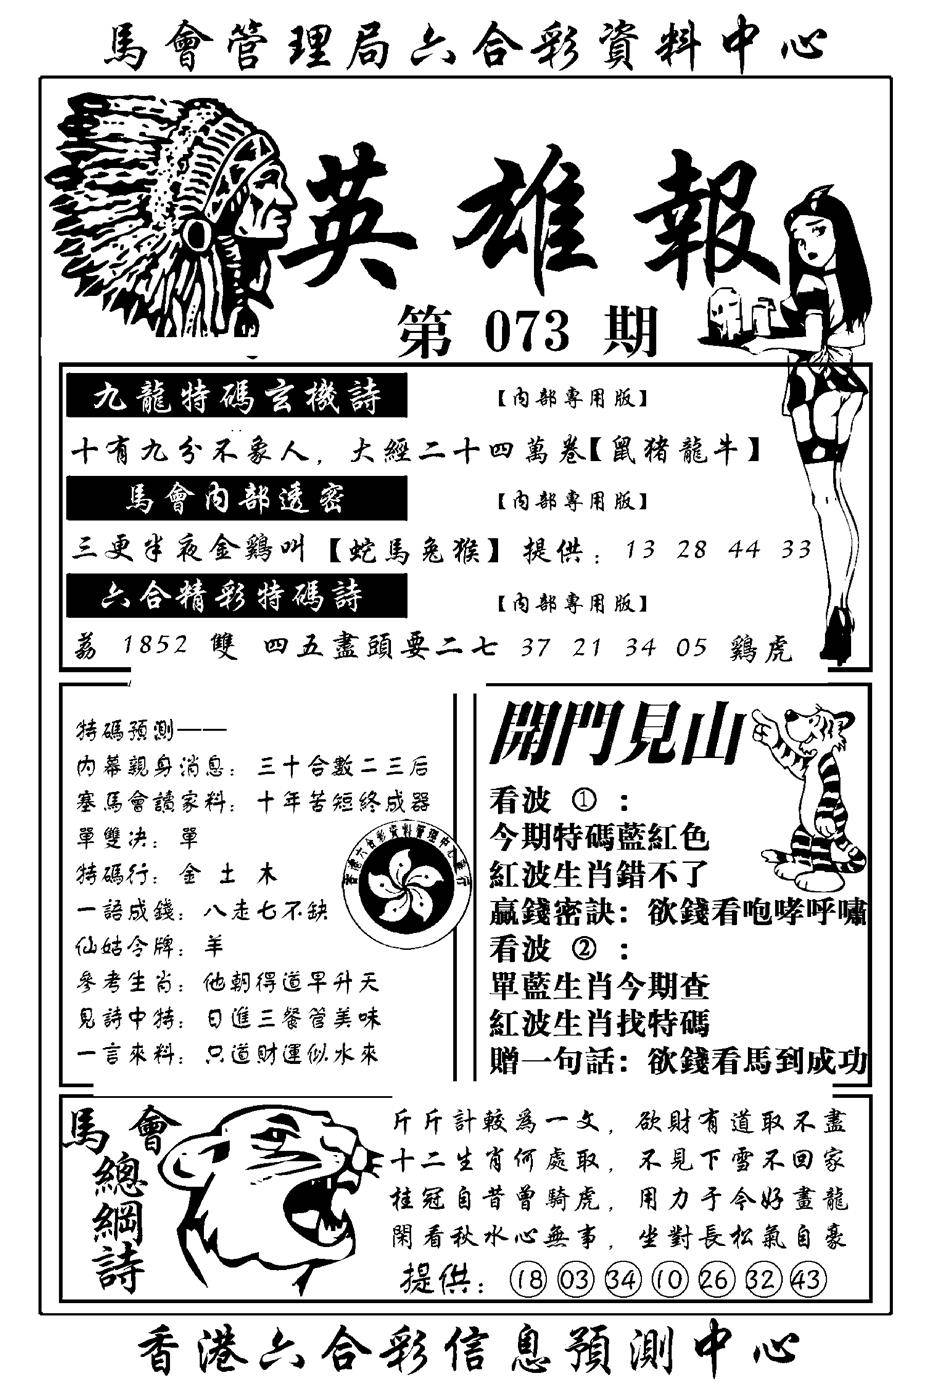 馬會管理局六合彩資料中心
英雄報
第 073 期
九龍特碼玄機詩 【內部專用版】
十有九分不象人, 大經二十四萬卷【鼠猪龍牛】
馬會內部透密 【內部專用版】
三更半夜金鷄叫【蛇馬兔猴】提供: 13 28 44 33
六合精彩特碼詩 【內部專用版】
荔 1852 雙 四五盡頭要二七 37 21 34 05 鷄虎
特碼預測——
內幕親身消息: 三十合數二三后
塞馬會讀家料: 十年苦短終成器
單雙决: 單
特碼行: 金 土 木
一語成錢: 八走七不缺
仙姑令牌: 羊
參考生肖: 他朝得道早升天
見詩中特: 日進三餐管美味
一言來料: 只道財運似水來
香港六合彩資料管理中心發行
開門見山
看波 ① :
今期特碼藍紅色
紅波生肖錯不了
贏錢密訣: 欲錢看咆哮呼嘯
看波 ② :
單藍生肖今期查
紅波生肖找特碼
贈一句話: 欲錢看馬到成功
馬會
總綱詩
斤斤計較爲一文, 欲財有道取不盡
十二生肖何處取, 不見下雪不回家
桂冠自昔曾騎虎, 用力于今好畫龍
閑看秋水心無事, 坐對長松氣自豪
提供: 18 03 34 10 26 32 43
香港六合彩信息預測中心